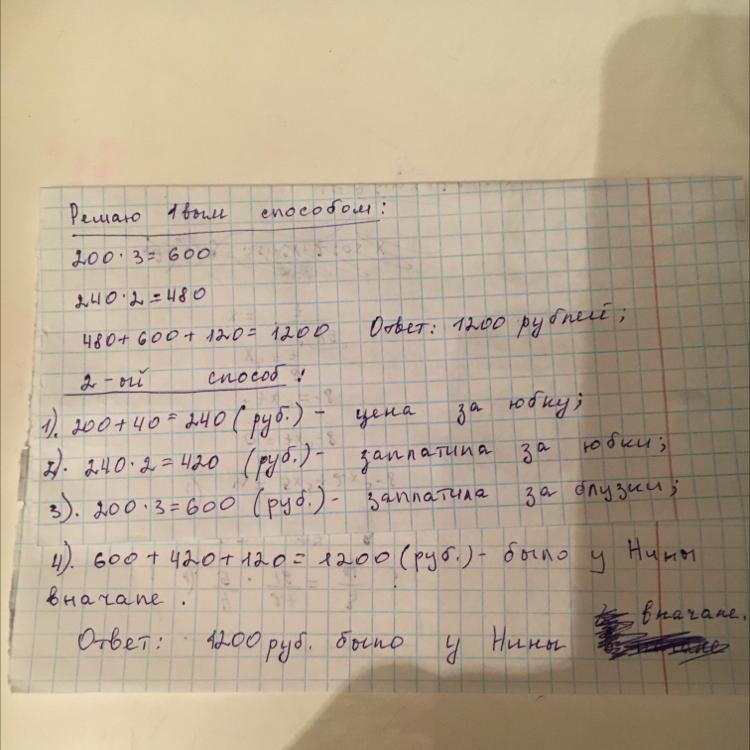 Решаю 1вым способом:
200·3=600
240·2=480
480+600+120=1200 Ответ: 1200 рублей;
2-ый способ:
1). 200+40=240 (руб.) - цена за юбку;
2). 240·2=420 (руб.) - заплатила за юбки;
3). 200·3=600 (руб.) - заплатила за блузки;
4). 600+420+120=1200 (руб.) - было у Нины
вначале.
Ответ: 1200 руб. было у Нины вначале.